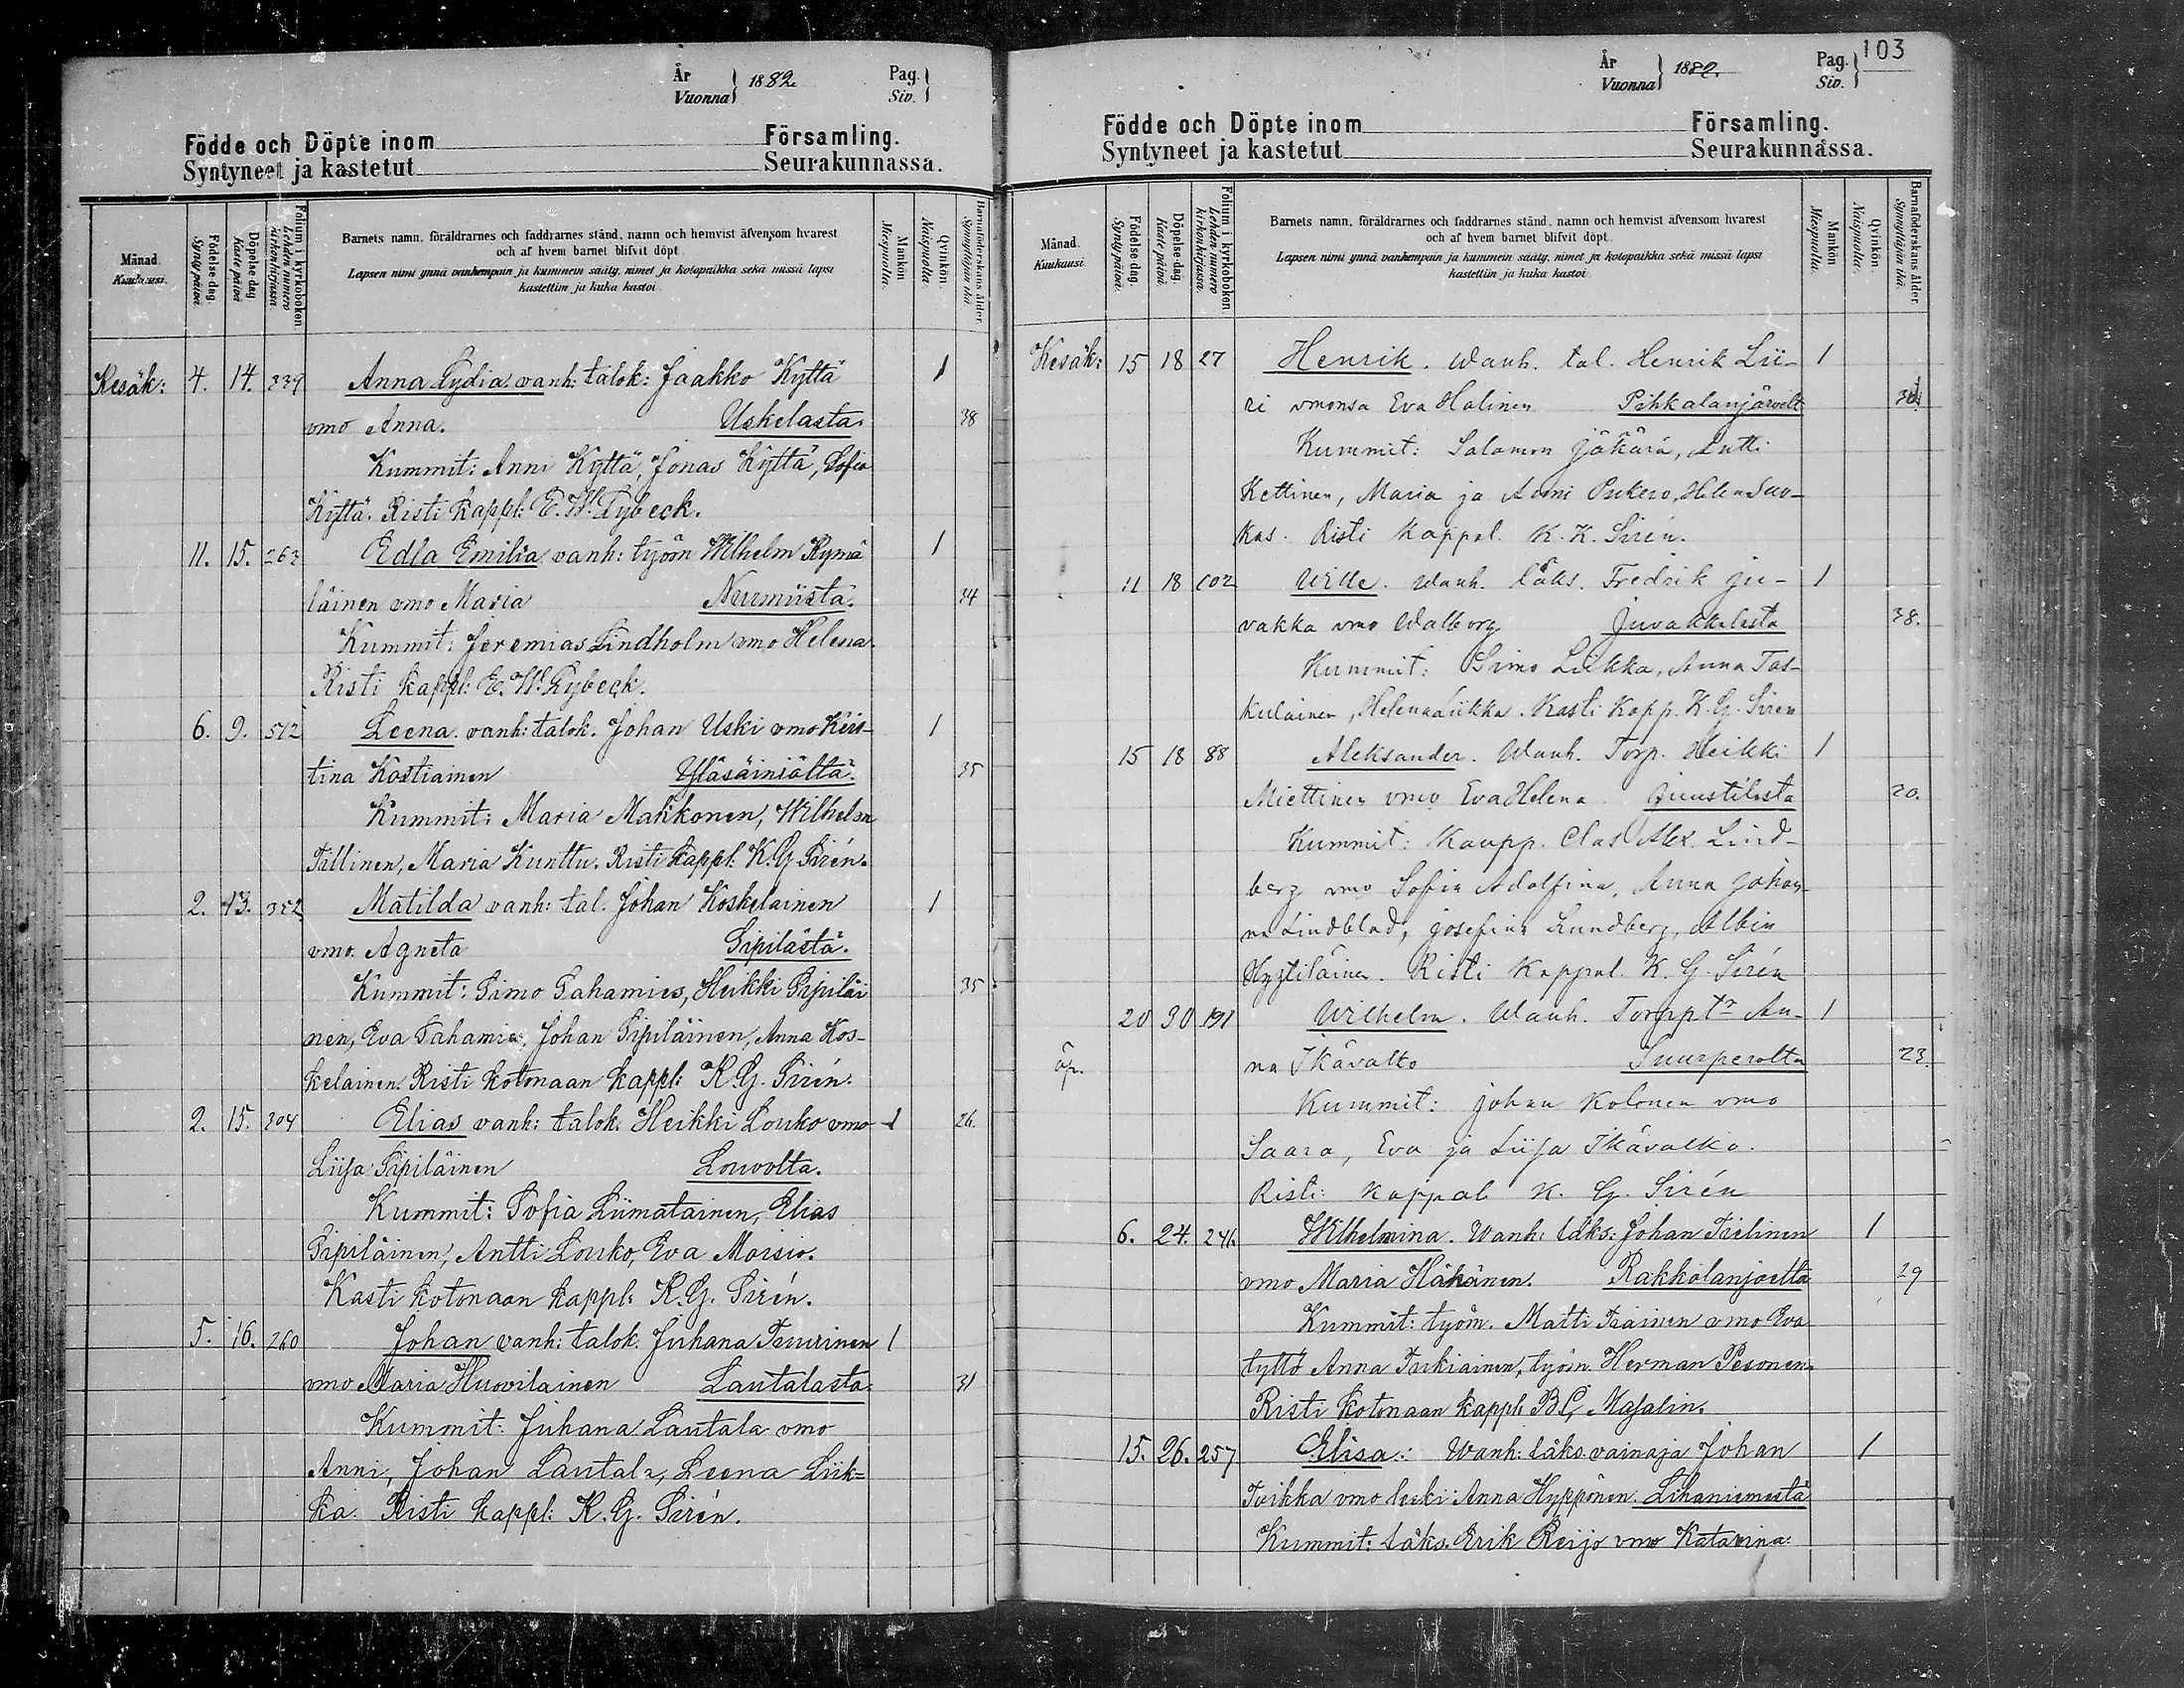 År
Vuonna } 1882.
Pag.
Siv. }
Födde och Döpte inom Församling.
Syntyneet ja kastetut Seurakunnassa.
Månad.
Kuukausi.
Födelsedag.
Syntypäivä.
Döpelsedag.
Kastepäivä.
Folium i kyrkoboken.
Lehden numero
kirkonkirjassa.
Barnets namn, föräldrarnes och faddrarnes stånd, namn och hemvist äfvensom hvarest
och af hvem barnet blifvit döpt.
Lapsen nimi ynnä vanhempain ja kummein sääty, nimet ja kotopaikka sekä missä lapsi
kastettiin ja kuka kastoi.
Mankön.
Miespuolia.
Qvinkön.
Naispuolia.
Barnaföderskans ålder.
Synnyttäjän ikä.
Kesäk: 4. 14. 239 Anna Lydia. vanh: talok: Jaakko Kyttä 1
vmo Anna. Uskelasta. 38
Kummit: Anni Kyttä, Jonas Kyttä, Sofia
Kyttä. Risti kappl: E. W. Lybeck.
11. 15. 263 Edla Emilia vanh: työm Wilhelm Kymä 1
läinen vmo Maria Nurmiista. 34
Kummit: Jeremias Lindholm vmo Helena.
Risti kappl: E. W. Lybeck.
6. 9. 512 Leena. vanh: talok. Johan Uski vmo Kris- 1
tina Kostiainen Yläsäiniöltä. 35
Kummit: Maria Makkonen, Wilhelm
Tillinen, Maria Kunttu. Risti kappl: K. G. Sirén.
2. 13. 352 Matilda vanh: tal. Johan Koskelainen 1
vmo. Agneta Sipilästä.
Kummit: Simo Sahamies, Heikki Sipiläi 35
nen, Eva Sahamies, Johan Sipiläinen, Anna Kos-
kelainen. Risti kotonaan kappl: K. G. Sirén.
2. 15. 304 Elias vanh: talok. Heikki Louko vmo 1 26.
Liisa Sipiläinen Louvolta.
Kummit: Sofia Liimatainen, Elias
Sipiläinen, Antti Louko, Eva Moisio.
Kasti kotonaan kappl: K. G. Sirén.
5. 16. 260 Johan vanh: talok. Juhana Tuurinen 1
vmo Maria Huovilainen Lautalasta. 31
Kummit: Juhana Lautala vmo
Anni, Johan Lautala, Leena Liik=
ka. Risti kappl: K. G. Sirén.
103
År
Vuonna } 1882.
Pag.
Siv. }
Födde och Döpte inom Församling.
Syntyneet ja kastetut Seurakunnassa.
Månad.
Kuukausi.
Födelsedag.
Syntypäivä.
Döpelsedag.
Kastepäivä.
Folium i kyrkoboken.
Lehden numero
kirkonkirjassa.
Barnets namn, föräldrarnes och faddrarnes stånd, namn och hemvist äfvensom hvarest
och af hvem barnet blifvit döpt.
Lapsen nimi ynnä vanhempain ja kummein sääty, nimet ja kotopaikka sekä missä lapsi
kastettiin ja kuka kastoi.
Mankön.
Miespuolia.
Qvinkön.
Naispuolia.
Barnaföderskans ålder.
Synnyttäjän ikä.
Kesäk: 15 18 27 Henrik. Wanh. tal. Henrik Lii- 1
ri vmonsa Eva Halinen Pihkalanjärvelt
Kummit: Salamon Jäkärä, Antti
Kettinen, Maria ja Anni Pukero, Helena Suo-
kas. Risti Kappal. K. K. Sirén.
11 18 102 Wille. Wanh. läks. Fredrik Ju- 1
vakka vmo Walborg Juvakkalasta 38.
Kummit: Simo Liikka, Anna Tas-
kulainen, Helena Liikka. Kasti Kapp. K. G. Siren
15 18 88 Aleksander. Wanh. Torp. Heikki 1
Miettinen vmo Eva Helena. Juustilasta 20.
Kummit: Kaupp. Clas Alex. Lind-
berg vmo Sofia Adolfina, Anna Johan-
na Lindblad, Josefina Lundberg, Albin
Hyytiläinen. Risti Kappal. K. G. Sirén
20 30 191 Wilhelm. Wanh. Torppt:r An- 1
äp. na Ikävalko Suurperolta 23.
Kummit: Johan Kolonen vmo
Saara, Eva ja Liisa Ikävalko.
Risti: Kappal K. G. Sirén
6. 24. 246. Wilhelmina. Wanh: läks: Johan Tielinen 1
vmo Maria Häkänen. Rakkolanjoelta 29
Kummit: työm. Matti Träinen vmo Eva
tyttö Anna Tarkiainen, työm. Herman Pesonen.
Risti kotonaan kappl. B C, Masalin.
15. 26. 257 Elisa: Wanh: läks. vainaja Johan 1
Toikka vmo leski Anna Hyppönen. Lihaniemestä
Kummit: läks. Erik Reijo vmo Katarina.